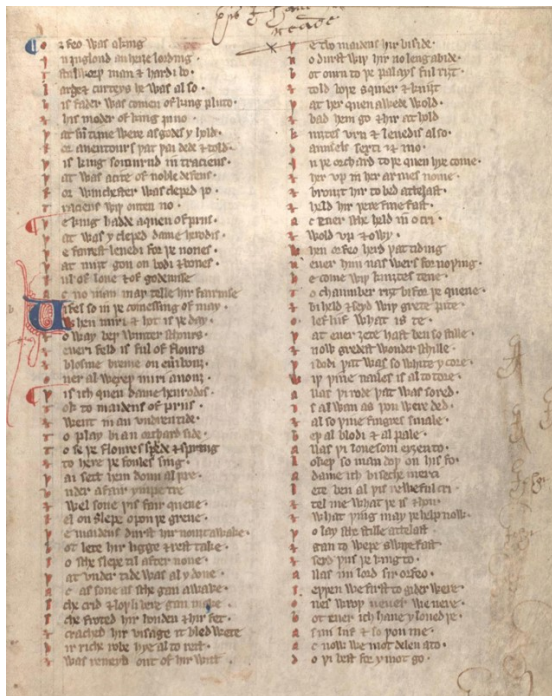 O rfeo was a king
I n inglond an heiȝe lording
A stalworþ man & hardi bo
L arge & curteys he was also
H is fader was comen of king pluto
& his moder of king juno
Þ at sum time were as godes yhold
F or auentours þat þai dede & told
Þ is king soiournd in traciens
Þ at was a cite of noble defens
F or winchester was cleped þo
T raciens wiþ outen no
Þ e king hadde a quen of priis
Þ at was y cleped dame herodis
Þ e fairest leuedi for þe nones
Þ at miȝt gon on bodi & bones
F ul of loue & of godenisse
A c no man may telle hir fairnise
B ifel so in þe comessing of may
W hen miri & hot is þe day
& o way beþ winter schours
& eueri feld is ful of flours
& blosme breme on eueri bouȝ
O uer al wexeþ miri anouȝ
Þ is ich quen dame heurodis
T ok to maidens of priis
& went in an vndrentide
T o play bi an orchard side
T o se þe floures sprede & spring
& to here þe foules sing
Þ ai sett hem doun al þre
V nder a fair ympe tre
& wel sone þis fair quene
F el on slepe opon þe grene
Þ e maidens durst hir nouȝt awake
B ot lete hir ligge & rest take
S o sche slepe til after none
Þ at vnder tide was al y done
A c as sone as sche gan awake
S che crid & loþli bere gan make
S che froted hir honden & hir fet
& crached hir visage it bled wete
H ir riche robe hye al to rett
& was reueyd out of hir witt
Þ e tvo maidens hir biside
N o durst wiþ hir no leng abide
B ot ourn to þe palays ful riȝt
& told boþe squier & kniȝt
Þ at her quen awede wold
& bad hem go & hir at hold
K niȝtes vrn & leuedis also
D amisels sexti & mo
I n þe orchard to þe quen hye come
& her vp in her armes nome
& brouȝt hir to bed attelast
& held hir þere fine fast
A c euer sche held in o cri
& wold vp & owy
W hen orfeo herd þat tiding
N euer him nas wers for noþing
H e come wiþ kniȝtes tene
T o chaumber riȝt bifor þe quene
& biheld & seyd wiþ grete pite
O lef liif what is te
Þ at euer ȝete hast ben so stille
& now gredest wonder schille
Þ i bodi þat was so white y core
W iþ þine nailes is al to tore
A llas þi rode þat was so red
I s al wan as þou were ded
& al so þine fingres smale
B eþ al blodi & al pale
A llas þi louesom eyȝen to
L okeþ so man doþ on his fo
A dame ich biseche merci
L ete ben al þis reweful cri
& tel me what þe is & hou
& what þing may þe help now
Þ o lay sche stille attelast
& gan to wepe swiþe fast
& seyd þus þe king to
A llas mi lord sir orfeo
S eþþen we first to gider were
O nes wroþ neuer we nere
B ot euer ich haue yloued þe
A s mi liif & so þou me
A c now we mot delen ato
D o þi best for y mot go